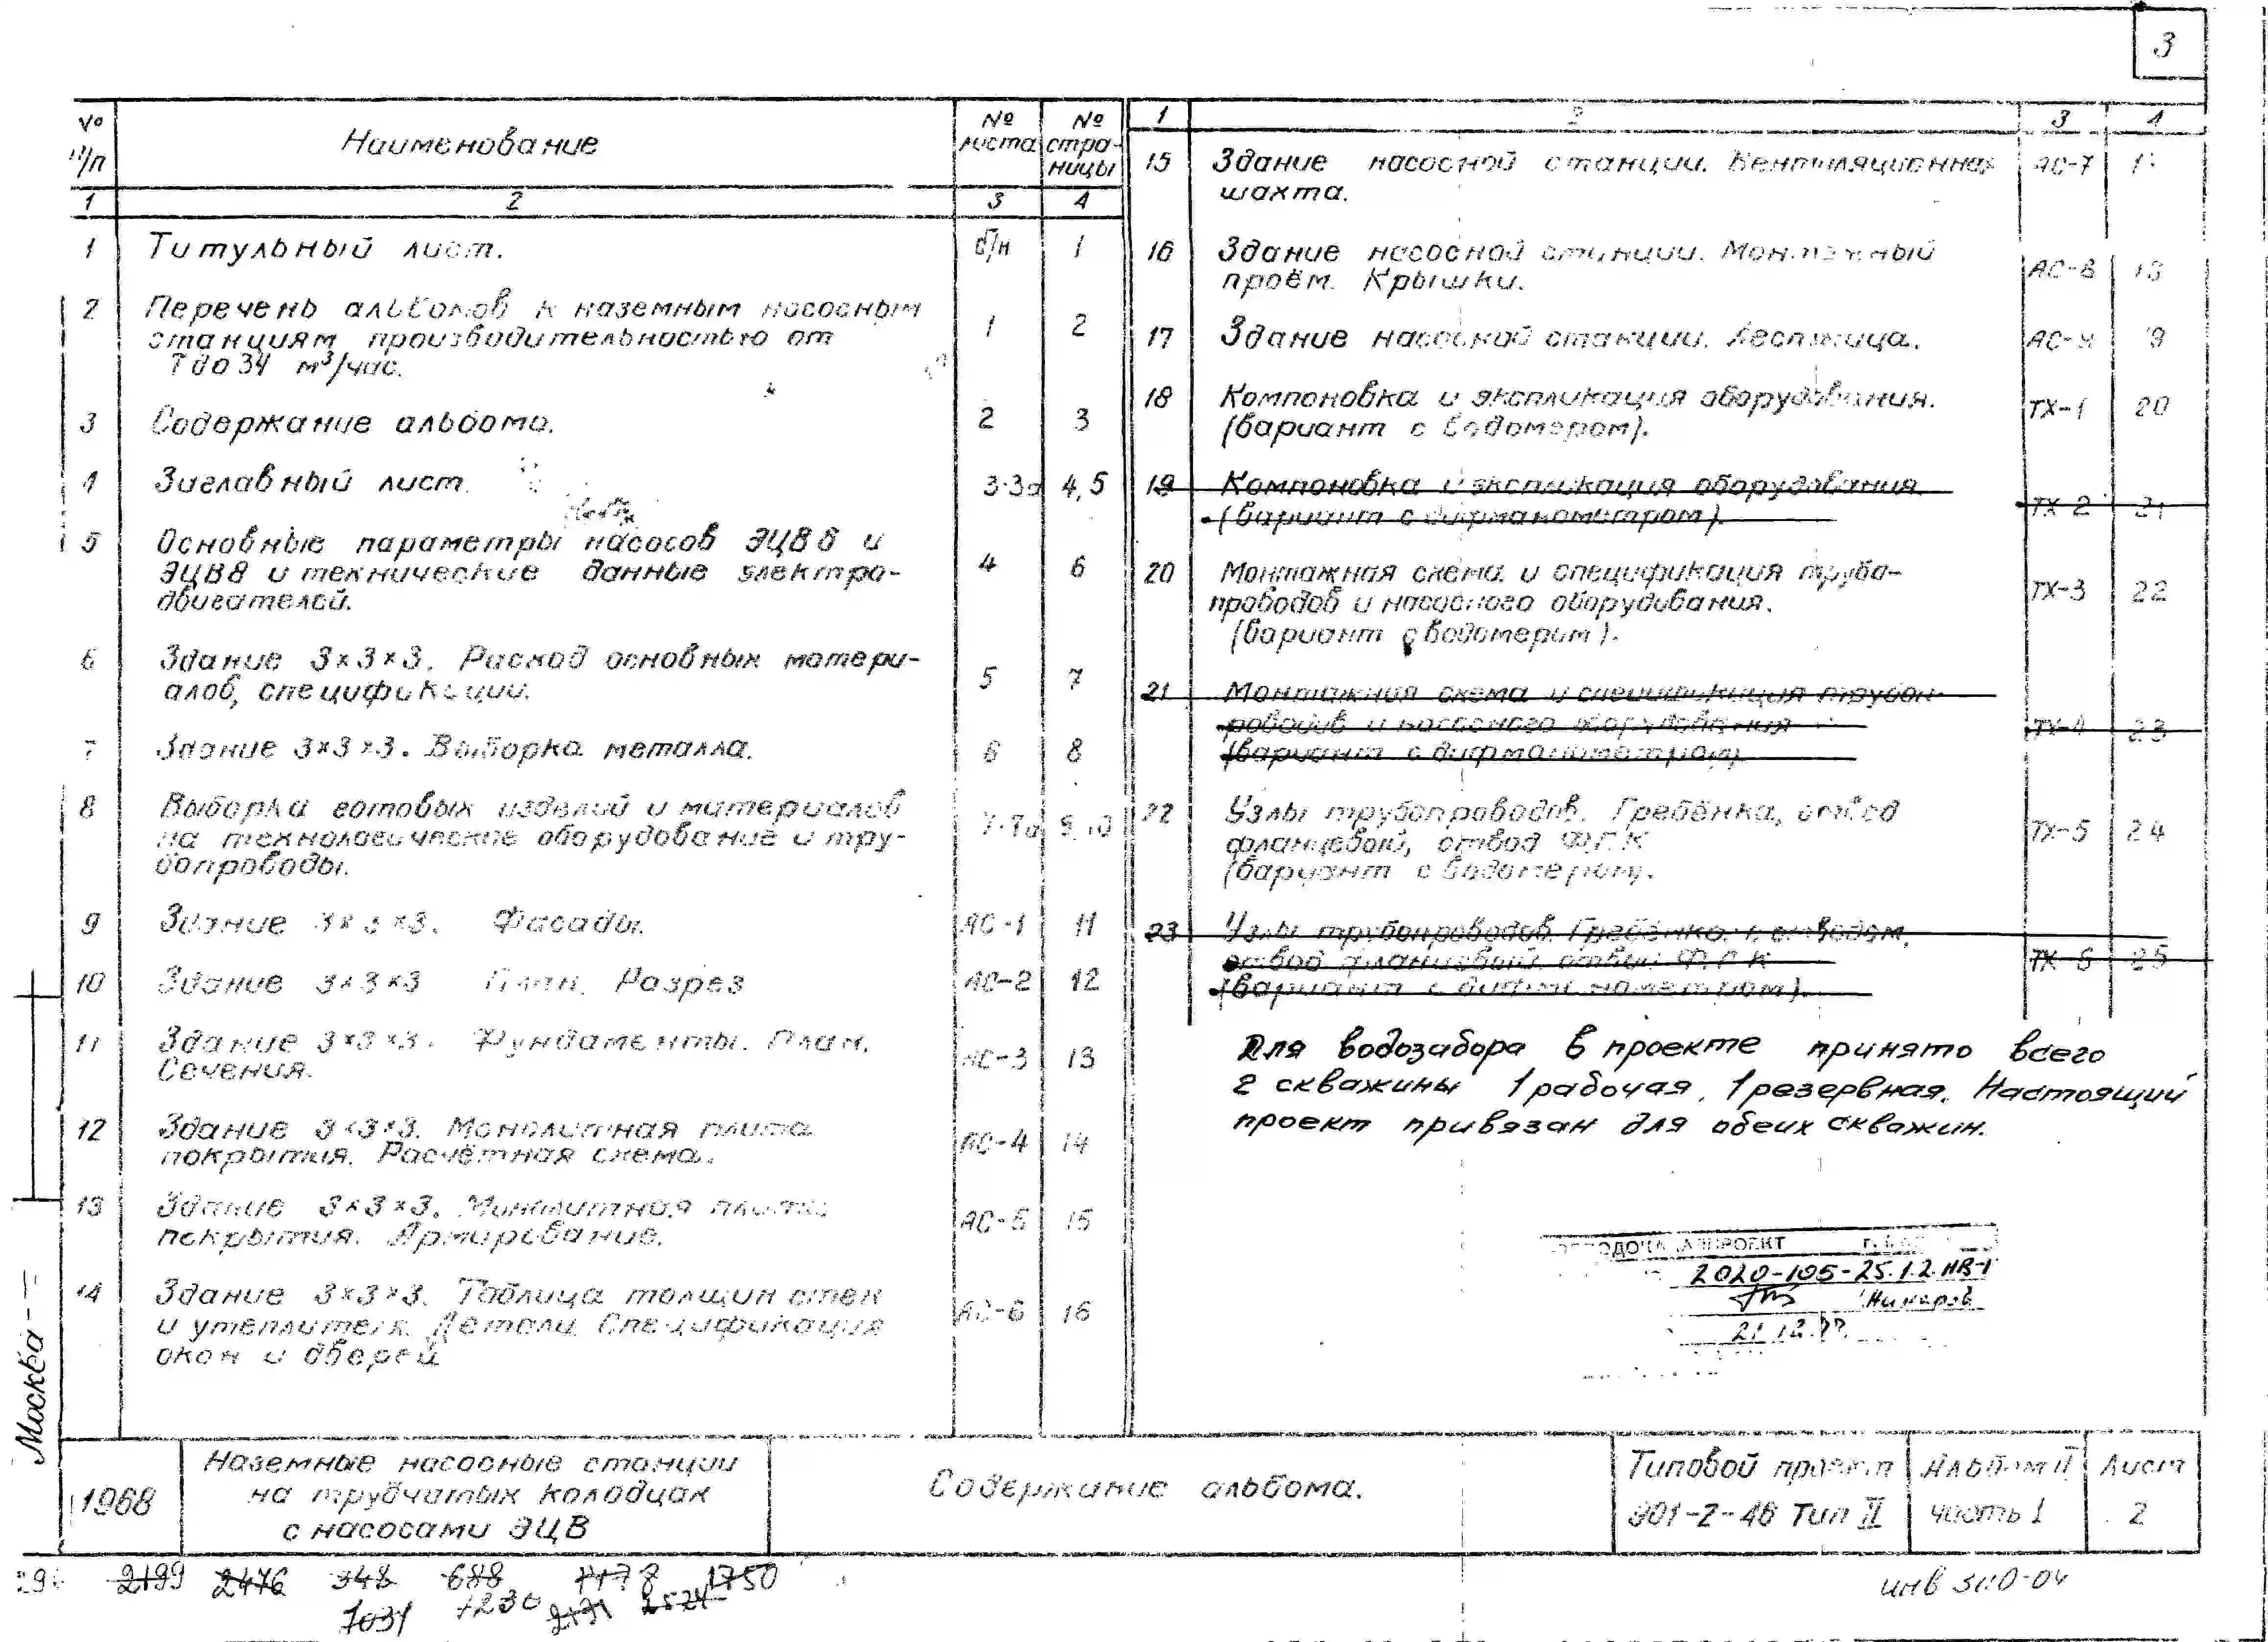 3
№ п/п
Наименование
№ листа
№ стра-
ницы
1 2 3 4
1 Титульный лист. б/н 1
2 Перечень альбомов к наземным насосным
станциям производительностью от 1 2
7 до 34 м³/час.
3 Содержание альбома. 2 3
4 Заглавный лист. 3-3а 4,5
5 Основные параметры насосов ЭЦВ6 и
ЭЦВ8 и технические данные электро- 4 6
двигателей.
6 Здание 3×3×3. Расход основных матери-
алов, спецификации. 5 7
7 Здание 3×3×3. Выборка металла. 6 8
8 Выборка готовых изделий и материалов
на технологическое оборудование и тру- 7-7а 9,10
бопроводы.
9 Здание 3×3×3. Фасады. АС-1 11
10 Здание 3×3×3 План. Разрез АС-2 12
11 Здание 3×3×3. Фундаменты. План.
Сечения. АС-3 13
12 Здание 3×3×3. Монолитная плита
покрытия. Расчётная схема. АС-4 14
13 Здание 3×3×3. Монолитная плита
покрытия. Армирование. АС-5 15
14 Здание 3×3×3. Таблица толщин стен
и утеплителя. Детали. Спецификация АС-6 16
окон и дверей
1 2 3 4
15 Здание насосной станции. Вентиляционная АС-7
шахта.
16 Здание насосной станции. Монтажный
проём. Крышки. АС-8 18
17 Здание насосной станции. Лестница. 19
18 Компоновка и экспликация оборудования.
(вариант с водомером). ТХ-1 20
19 Компоновка и экспликация оборудования.
(вариант с дифманометром). ТХ-2 21
20 Монтажная схема и спецификация трубо-
проводов и насосного оборудования. ТХ-3 22
(вариант с водомером).
21 Монтажная схема и спецификация трубоп-
роводов и насосного оборудования
(вариант с дифманометром) ТХ-4 23
22 Узлы трубопроводов. Гребёнка, отвод
фланцевый, отвод ФГК ТХ-5 24
(вариант с водомером).
23 Узлы трубопроводов. Гребёнка с отводом,
отвод фланцевый, отвод ФГК ТХ-6 25
(вариант с дифманометром).
Для водозабора в проекте принято всего
2 скважины 1 рабочая, 1 резервная. Настоящий
проект привязан для обеих скважин.
2020-105-25.1.2.НВ-1
Москва -
1968
Наземные насосные станции
на трубчатых колодцах
с насосами ЭЦВ
Содержание альбома.
Типовой проект
901-2-46 Тип II
Альбом II
часть 1
Лист
2
2199 2476 348 688 1478 1750
7031 7230 2131 2524
инв 3110-04